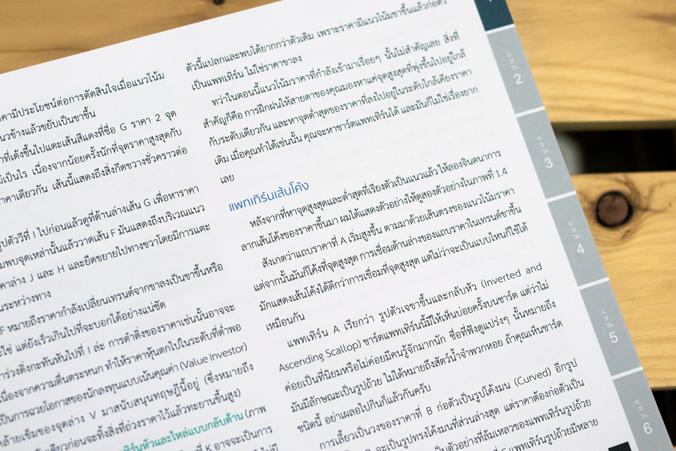 คามีประโยชน์ต่อการตัดสินใจเมื่อแนวโน้ม
นวข้างแล้วขยับเป็นขาขึ้น
าที่เด้งขึ้นไปแตะเส้นสีแดงที่ชื่อ G ราคา 2 จุด
ม่เป็นไร เนื่องจากน้อยครั้งนักที่จุดราคาสูงสุดกับ
าคาเดียวกัน เส้นนี้แสดงถึงสิ่งกีดขวางชั่วคราวต่อ
รูปตัววีที่ I ไปก่อนแล้วดูที่ด้านล่างเส้น G เพื่อหาราคา
มพบจุดเหล่านั้นแล้ววาดเส้น F มันแสดงถึงบริเวณแนว
าคาล่าง J และ H และยืดขยายไปทางขวาโดยมีการแตะ
นระหว่างทาง
F หมายถึงราคากำลังเปลี่ยนเทรนด์จากขาลงเป็นขาขึ้นหรือ
ใช่ แต่ยังเร็วเกินไปที่จะบอกได้อย่างแน่ชัด
ร่วงดิ่งกะทันหันไปที่ I ล่ะ การดำดิ่งของราคาเช่นนั้นอาจจะ
เนื่องจากความตื่นตระหนก ทำให้ราคาหุ้นตกไปในระดับที่ต่ำพอ
เป็นการฉวยโอกาสของนักลงทุนแบบเน้นคุณค่า (Value Investor)
ล้ายเข็มของจุดล่าง V มาสนับสนุนทฤษฎีนี้อยู่ (ซึ่งหมายถึง
ดียวก่อนจะทิ้งสิ่งที่ถ่วงราคาไว้แล้วทะยานขึ้นสูง)
ทิร์นหัวและไหล่แบบกลับด้าน (ภาพ
ที่ K อาจจะเป็นการ
ตัวนี้แปลกและพบได้ยากกว่าตัวเดิม เพราะราคามีแนวโน้มขาขึ้นแล้วก่อตัว
เป็นแพทเทิร์น ไม่ใช่ราคาขาลง
ทว่าในตอนนี้แนวโน้มราคาที่กำลังเข้ามาเรื่อยๆ นั้นไม่สำคัญเลย สิ่งที่
สำคัญก็คือ การฝึกฝนให้สายตาของคุณมองหาแค่จุดสูงสุดที่พุ่งขึ้นไปอยู่ใกล้
กับระดับเดียวกัน และหาจุดต่ำสุดของราคาที่ลงไปอยู่ในระดับใกล้เคียงราคา
เดิม เมื่อคุณทำได้เช่นนั้น คุณจะหาชาร์ตแพทเทิร์นได้ และมันก็ไม่ใช่เรื่องยาก
เลย
แพทเทิร์นเส้นโค้ง
หลังจากที่หาจุดสูงสุดและต่ำสุดที่เรียงตัวเป็นแนวแล้ว ให้ลองจินตนาการ
ลากเส้นโค้งของราคาขึ้นมา ผมได้แสดงตัวอย่างให้ดูสองตัวอย่างในภาพที่ 1.4
สังเกตว่าแถบราคาที่ A เริ่มสูงขึ้น ตามมาด้วยเส้นตรงของแนวโน้มราคา
แต่จากนั้นมันก็โค้งที่จุดสูงสุด การเชื่อมด้านล่างของแถบราคาในเทรนด์ขาขึ้น
มักแสดงเส้นโค้งได้ดีกว่าการเชื่อมที่จุดสูงสุด แต่ไม่ว่าจะเป็นแบบไหนก็ใช้ได้
เหมือนกัน
แพทเทิร์น A เรียกว่า รูปตัวเจขาขึ้นและกลับหัว (Inverted and
Ascending Scallop) ชาร์ตแพทเทิร์นนี้มีให้เห็นบ่อยครั้งบนชาร์ต แต่ว่าไม่
ค่อยเป็นที่นิยมหรือไม่ค่อยมีคนรู้จักมากนัก ชื่อที่ฟังดูแปร่งๆ นั้นหมายถึง
มันมีลักษณะเป็นรูปถ้วย ไม่ได้หมายถึงสัตว์น้ำจำพวกหอย ถ้าคุณเห็นชาร์ต
ชนิดนี้ อย่าเผลอไปกินก็แล้วกันครับ
การเลี้ยวเป็นวงของราคาที่ B ก่อตัวเป็นรูปโค้งมน (Curved) อีกรูป
จะเป็นรูปทรงโค้งมนที่ส่วนล่างสุด แต่ราคาต้องก่อตัวเป็น
เป็นตัวอย่างที่ล้มเหลวของแพทเทิร์นรูปถ้วย
แพทเทิร์นรูปถ้วยมีหลาย
บทที่ 2
บทที่ 3
บทที่ 4
บทที่ 5
บทที่ 6